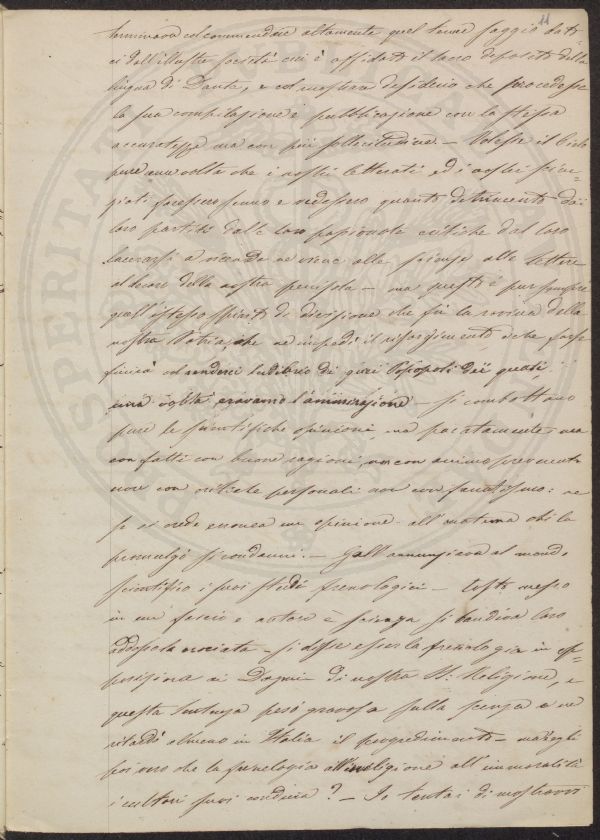 11
terminava col commendare altamente quel tenue saggio dato-
ci dall'illustre società cui è affidato il sacro deposito della
lingua di Dante, e col mostrare desiderio che procedesse
la sua compilazione e pubblicazione con la stessa
accuratezza ma con più sollecitudine — Volesse il Cielo
pure una volta che i nostri letterati ed i nostri scien-
ziati facessero senno e vedessero quanto detrimento dai
loro partiti dalle loro passionate critiche dal loro
lacerarsi a vicenda ne viene alle scienze alle lettere
al decoro della nostra penisola — ma questo è pur sempre
quell'istesso spirito di divisione che fù la rovina della
nostra Patria, che ne impedì il risorgimento e che forse
finirà col renderci ludibrio di quei Popoli dei quali
una volta eravamo l'ammirazione — si combattano
pure le scientifiche opinioni, ma pacatamente, ma
con fatti con buone ragioni, ma con animo
non con criticate personali non con fanatismo: se
se si crede erronea un opinione all'anatema chi la
promulgò si condanni. — Gall annunziava al mondo
scientifico i suoi studi frenologici — tosto messo
in un fascio e autore e scienza si bandiva loro
addosso la crociata — si disse esser la frenologia in op-
posizione ai Dogmi di nostra S. Religione, e
questa sentenza pesò gravosa sulla scienza e ne
ritardò almeno in Italia il progredimento — ma egli
poi vero che la frenologia all'irreligione all'immoralità
i cultori suoi conduca? — Io tentai di mostrarvi